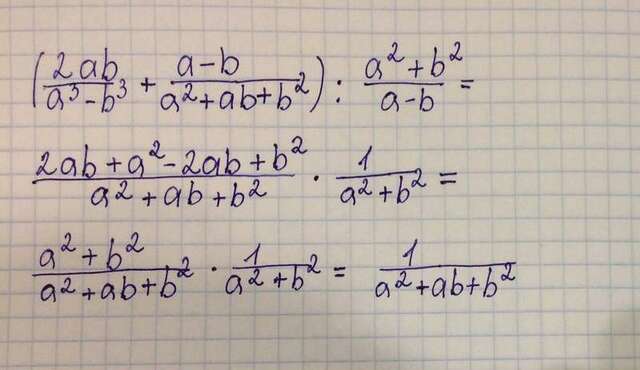 (2ab/(a³-b³) + (a-b)/(a²+ab+b²)) : (a²+b²)/(a-b) =
(2ab+a²-2ab+b²)/(a²+ab+b²) · 1/(a²+b²) =
(a²+b²)/(a²+ab+b²) · 1/(a²+b²) = 1/(a²+ab+b²)